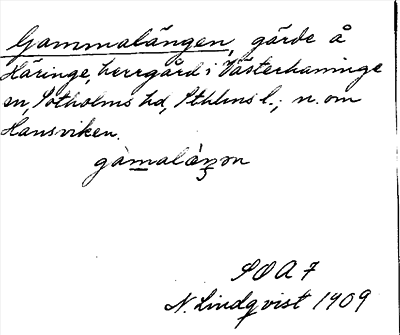 Gammalängen, gärde å
Häringe, herrgård i Västerhaninge
sn, Sotholms hd, Sthlms l.; n. om
Hansviken.
gàmalän̡ən
SOA 7
N. Lindqvist 1909